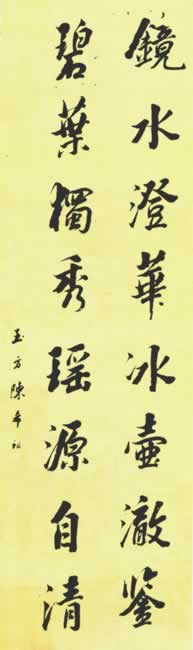 鏡水澄華冰壺澈鉴
碧葉獨秀瑶源自清
玉方陳希祖